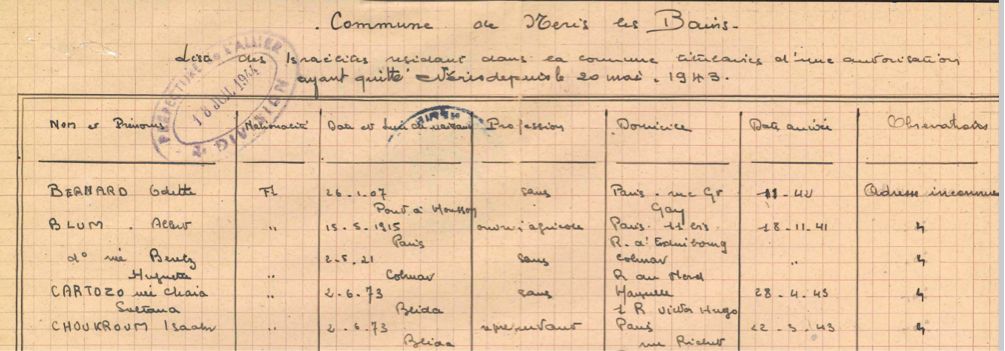 Commune de Neris les Bains.
Liste des Israélites résidant dans la commune titulaires d'une autorisation
ayant quitté Néris depuis le 20 mai. 1943.
PREFECTURE DE L'ALLIER
18 JUIL 1944
DIVISION
Nom et Prénoms Nationalité Date et Lieu de naissance Profession Domicile Date arrivée Observations
BERNARD Odette Fs 26.1.07 sans Paris. rue Gr 42 Adresse inconnue
Pont à Mousson Gay
BLUM. Albert " 15.5.1915 ouvrier agricole Paris. 11 bis 18-11-41 "
Paris R. d'Edimbourg
do née Huguette " 2-5.21 sans Colmar " "
Colmar R du Nord
CARTOZO née Chaia " 2-6.73 sans 28-4.43 "
Sultana Blida 1 R Victor Hugo
CHOUKROUM Isaac " 2.6.73 Paris 22-3-43 "
Blida rue Richer